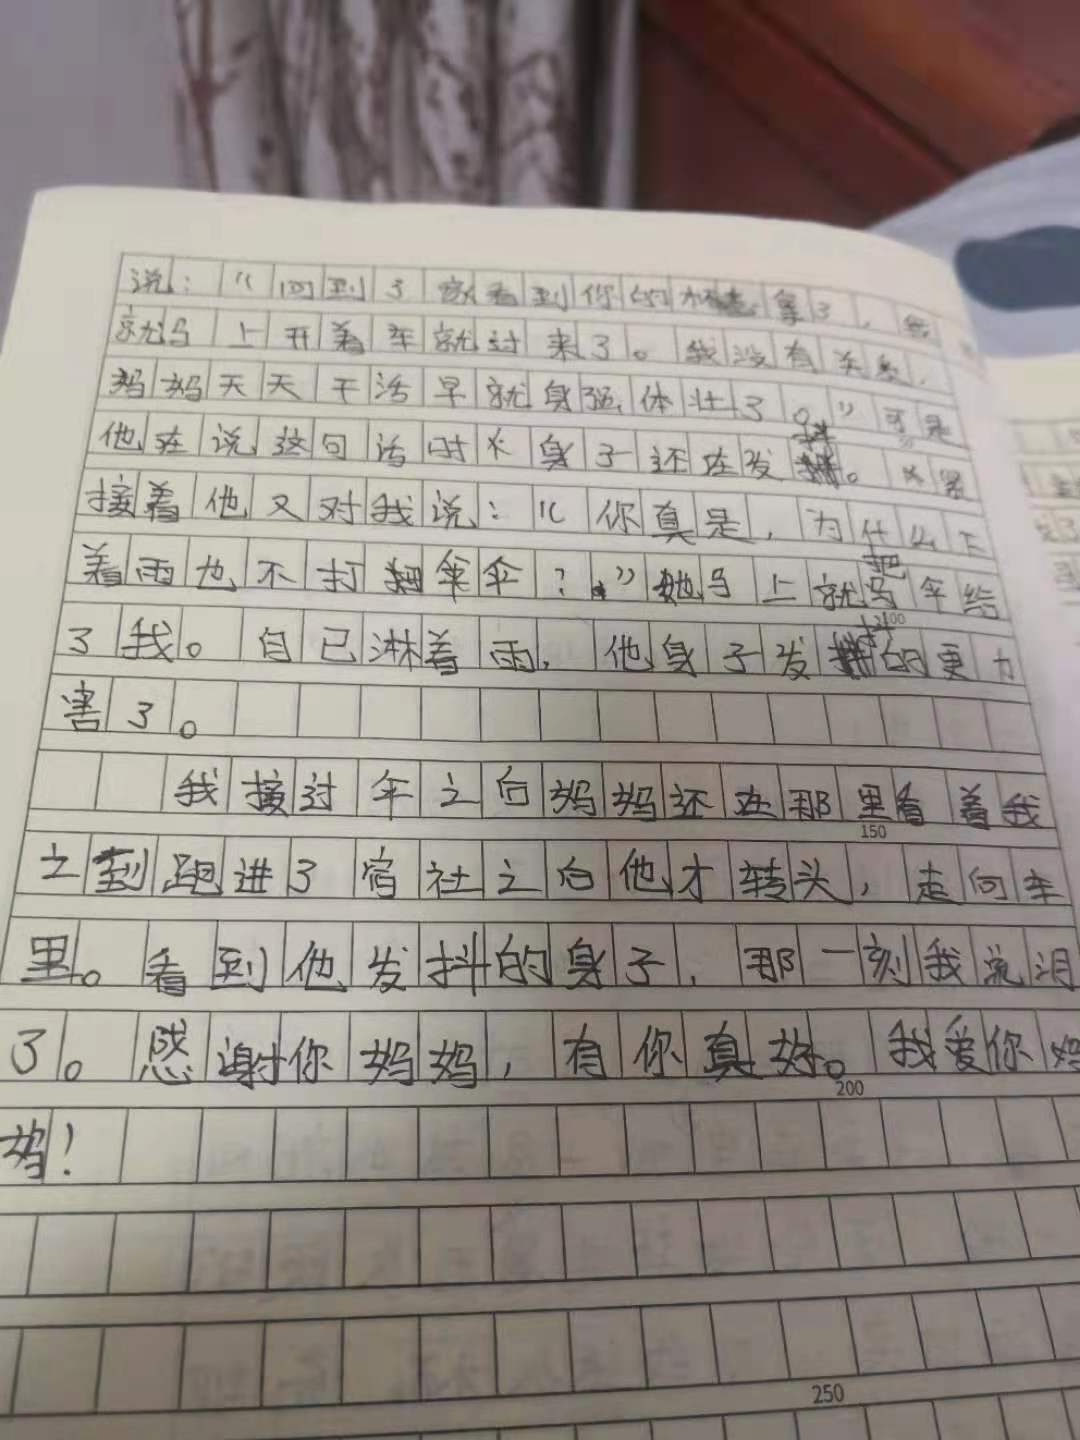 说：“回到了家看到你的 拿了，我
就马上开着车就过来了。我没有关系，
妈妈天天干活早就身强体壮了。”可是
他在说这句话时 身子还在发抖。 紧
接着他又对我说：“你真是，为什么下
着雨也不打伞？”她马上就把伞给
了我。自已淋着雨，他身子发抖的更力
害了。
我接过伞之向妈妈还在那里看着我
之到跑进了宿社之向他才转头，走向车
里。看到他发抖的身子，那一刻我流泪
了。感谢你妈妈，有你真好。我爱你妈
妈！
150
200
250